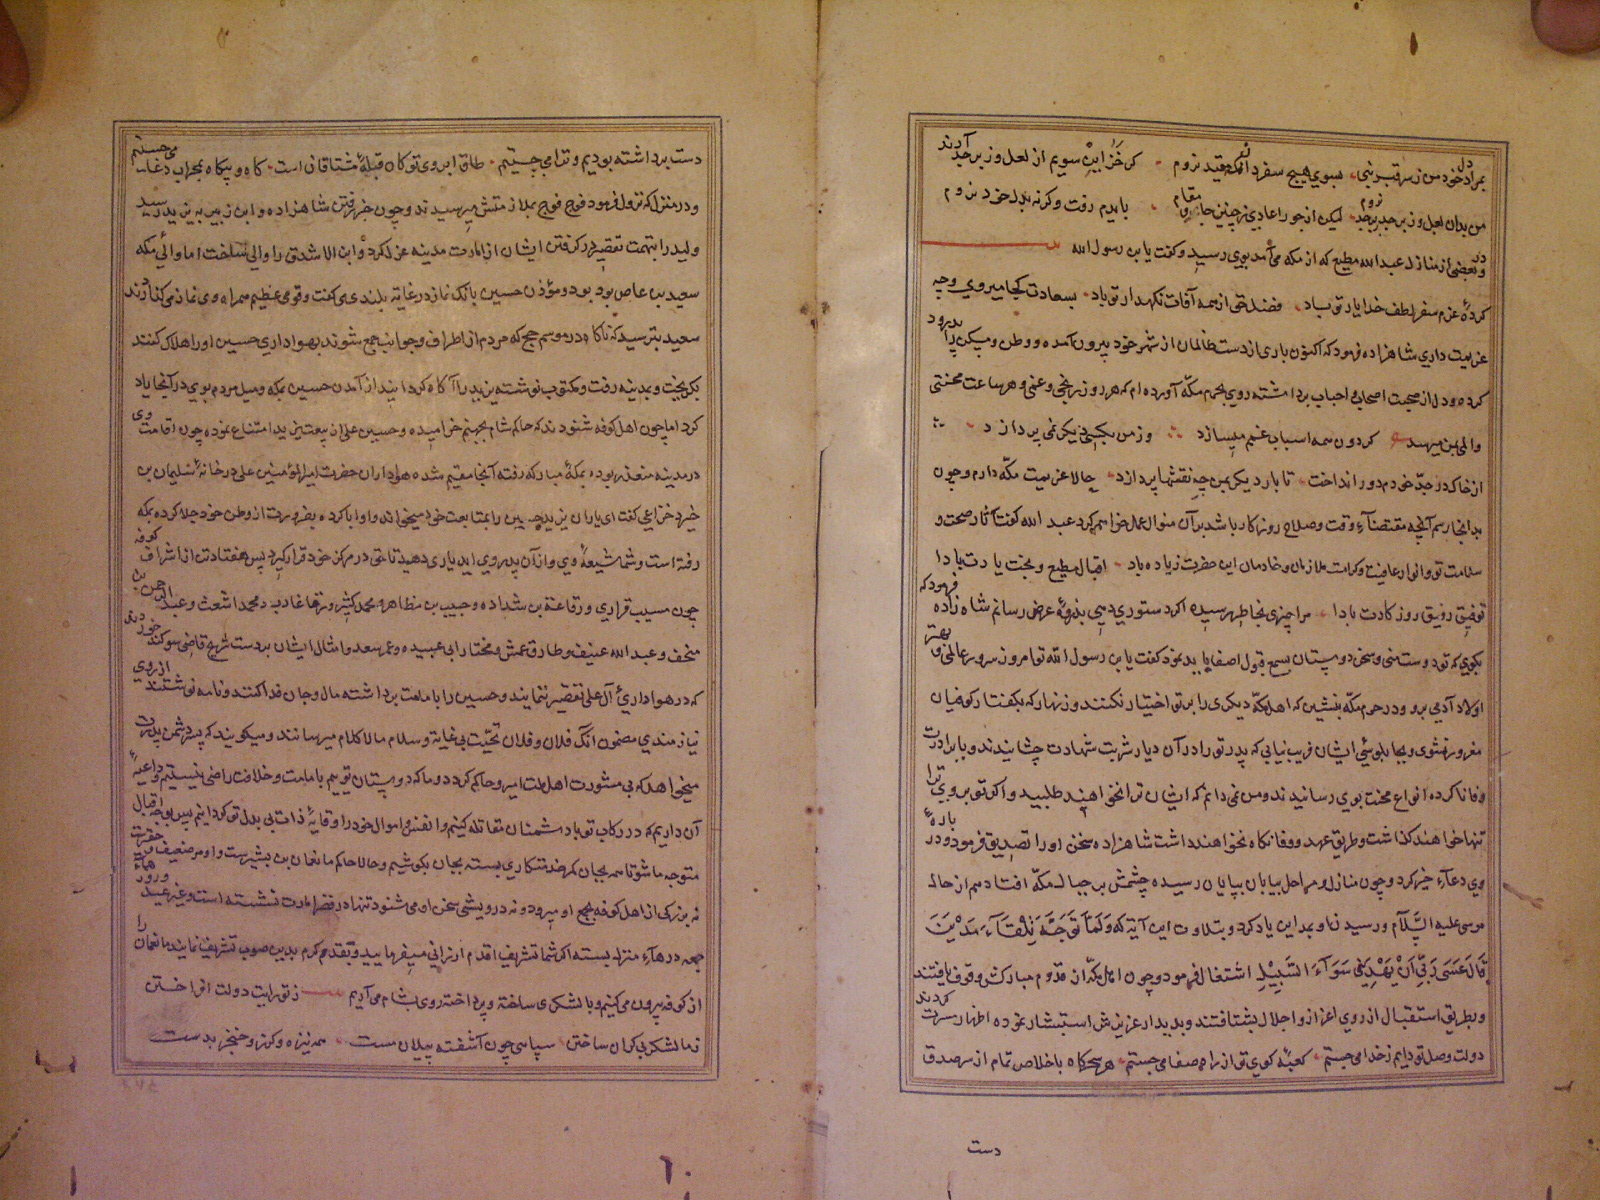 بمراد دل خود من ز سر قبر نبی بسوی هیچ سفر نروم که خرابین سویم از لعل و زبرجد آرند
من بدان لعل و زبرجد نروم لیکن از جور اعادی ز چنین جا و مقام بایدم رفت وگرنه بدل خود نروم
و در بعضی از منازل عبد الله مطیع که از مکه می‌آمد بوی رسید و گفت یا بن رسول الله
کردهٔ عزم سفر لطف خدا یار تو باد فضل حق از همه آفات نگهدار تو باد بسعادت کجا میروی و چه
عزیمت داری شاهزاده فرمود که اکنون باری از دست ظالمان از شهر خود بیرون آمده و وطن و مسکن را پدرود
کرده و دل از صحبت اصحاب و احباب برداشته روی بحرم مکّه آورده ام که هر روز رنجی و غمی و هر ساعت محنتی
و المی بمن میرسد گردون همه اسباب غمم میسازد وز من بکسی دیگر نمی پردازد
از خاک در جدّ خودم دور انداخت تا بار دیگر بمن چه نقشها پردازد حالا عزیمت مکّه دارم و چون
بدانجا رسم آنچه مقتضاء وقت و صلاح روزگار باشد بر آن منوال عمل خواهم کرد عبد الله گفت آثار صحت و
سلامت تو و انوار عافیت و کرامت ملازمان و خادمان این حضرت زیاده باد اقبال مطیع و بخت یارت بادا
توفیق رفیق روزگارت بادا مرا چیزی بخاطر رسیده اگر دستوری دهی بذروهٔ عرض رسانم شاه زاده فرمود که
بگوی که تو دوست منی و سخن دوستان بسمع قبول اصغا باید نمود گفت یا بن رسول الله تو امروز سرور عالمی و بهتر
اولاد آدمی برو و در حرم مکّه بنشین که اهل مکّه دیگری را بر تو اختیار نکنند و زنهار که بگفتار کوفیان
مغرور نشوی و بجاپلوسی ایشان فریب نیابی که پدر تو را در آن دیار شربت شهادت چشانیدند و با برادرت
وفا ناکرده انواع محنت بوی رسانیدند و من نمی دانم که ایشان ترا نخواهند طلبید و اگر تو بروی ترا
تنها خواهند گذاشت و طریق عهد و وفا نگاه نخواهند داشت شاهزاده سخن او را تصدیق فرمود و در باره
وی دعاء خیر کرد و چون منازل و مراحل بیابان بپایان رسیده چشمش بر جبال مکّه افتاد هم از حال
موسی علیه السّلام و رسیدن او بمداین یاد کرد و بتلاوت این آیه که وَلَمَّا تَوَجَّهَ تِلْقَآءَ مَدْیَنَ
قَالَ عَسَی رَبِّی اَنْ یَهْدِیَنِی سَوَآءَ السَّبِیْلِ اشتغال فرمود و چون اهل مکّه از قدوم مبارکش وقوف یافتند
و بطریق استقبال از روی اعزاز و اجلال بشتافتند و بدیدار عزیزش استبشار نموده اظهار مسرت کردند
دولت وصل تو دایم ز خدا می جستیم کعبهٔ کوی تو از راه صفا می جستیم هر سحرگاه باخلاص تمام از سر صدق
دست
دست برداشته بودیم و ترا می جستیم طاق ابروی تو کان قبلهٔ مشتاقان است گاه و بیگاه بمحراب دعا می جستیم
و در منزل که نزول فرمود فوج فوج بملازمتش میرسیدند و چون خبر رفتن شاهزاده و ابن زبیر به یزید رسید
ولید را بتهمت تقصیر در گرفتن ایشان از امارت مدینه عزل کرد و ابن الاشدق را والی ساخت اما والی مکه
سعید بن عاص بود و مؤذن حسین بانگ نماز در غایت بلندی می گفت و قومی عظیم همراه وی نماز می گذاردند
سعید بترسید که ناگاه در موسم حج که مردم از اطراف و جوانب جمع شوند بهواداری حسین او را هلاک کنند
بگریخت و بمدینه رفت و مکتوب نوشته یزید را آگاه گردانید از آمدن حسین بمکه و میل مردم بوی در آنجا یاد
کرد اما چون اهل کوفه شنودند که حاکم شام بجهنم خرامیده و حسین علی از بیعت یزید امتناع نموده چون اقامت وی
در مدینه متعذر بوده بمکهٔ مبارکه رفته آنجا مقیم شده هواداران حضرت امیر المؤمنین علی در خانهٔ سلیمان بن
خزاعی گفت ای یاران یزید حسین را بمتابعت خود میخواند و او ابا کرده بضرورت از وطن خود جلا کرده بمکه
رفته است و شما شیعهٔ وی و از آن پدر وی اید یاری دهید تا حق در مرکز خود قرار گیرد پس هفتاد تن از اشراف کوفه
چون مسیب قراری و رفاعة بن شداده و حبیب بن مظاهر و محمد کثیر و محمد اشعث و عبد الرحمن بن
مخنف و عبد الله عفیف و طارق اعمش و مختار ابی عبیده و عمر سعد و امثال ایشان بر دست شریح قاضی سوگند خوردند
که در هواداری آل علی تقصیر ننمایند و حسین را بامامت برداشته مال و جان فدا کنند و نامه نوشتند از روی
نیازمندی مضمون آنک فلان و فلان تحیّت بی غایة و سلام مالا کلام میرسانند و میگویند که پسر دشمن پدرت
میخواهد که بی مشورت اهل ملت امیر و حاکم گردد و ما که دوستان توییم بامامت و خلافت راضی نیستیم و داعیهٔ
آن داریم که در رکاب تو با دشمنان مقاتله کنیم و انفس و اموال خود را وقایهٔ ذات بی بدل تو گردانیم پس بوجه اقبال
متوجه ما شو تا همه بجان کمر خدمتکاری بسته بجان بکوشیم و حالا حاکم ما نعمان بن بشیرست و او مرد ضعیف
نه بزرگی از اهل کوفه بجمع او میرود و نه درویشی سخن او می شنود تنها در قصر امارت نشسته است و غیر عید
جمعه در هاء منزل بسته اگر شما تشریف اقدام ارزانی میفرمایید و بقدم کرم بدین صوب تشریف نمایند ما نعمان را
از کوفه بیرون می کنیم و با لشکری ساخته و پرداخته روی بشام می آریم ز تو رایت دولت افراختن
ز ما لشکر بی کران ساختن سپاهی چون آشفته پیلان مست همه نیزه و گرز و خنجر بدست